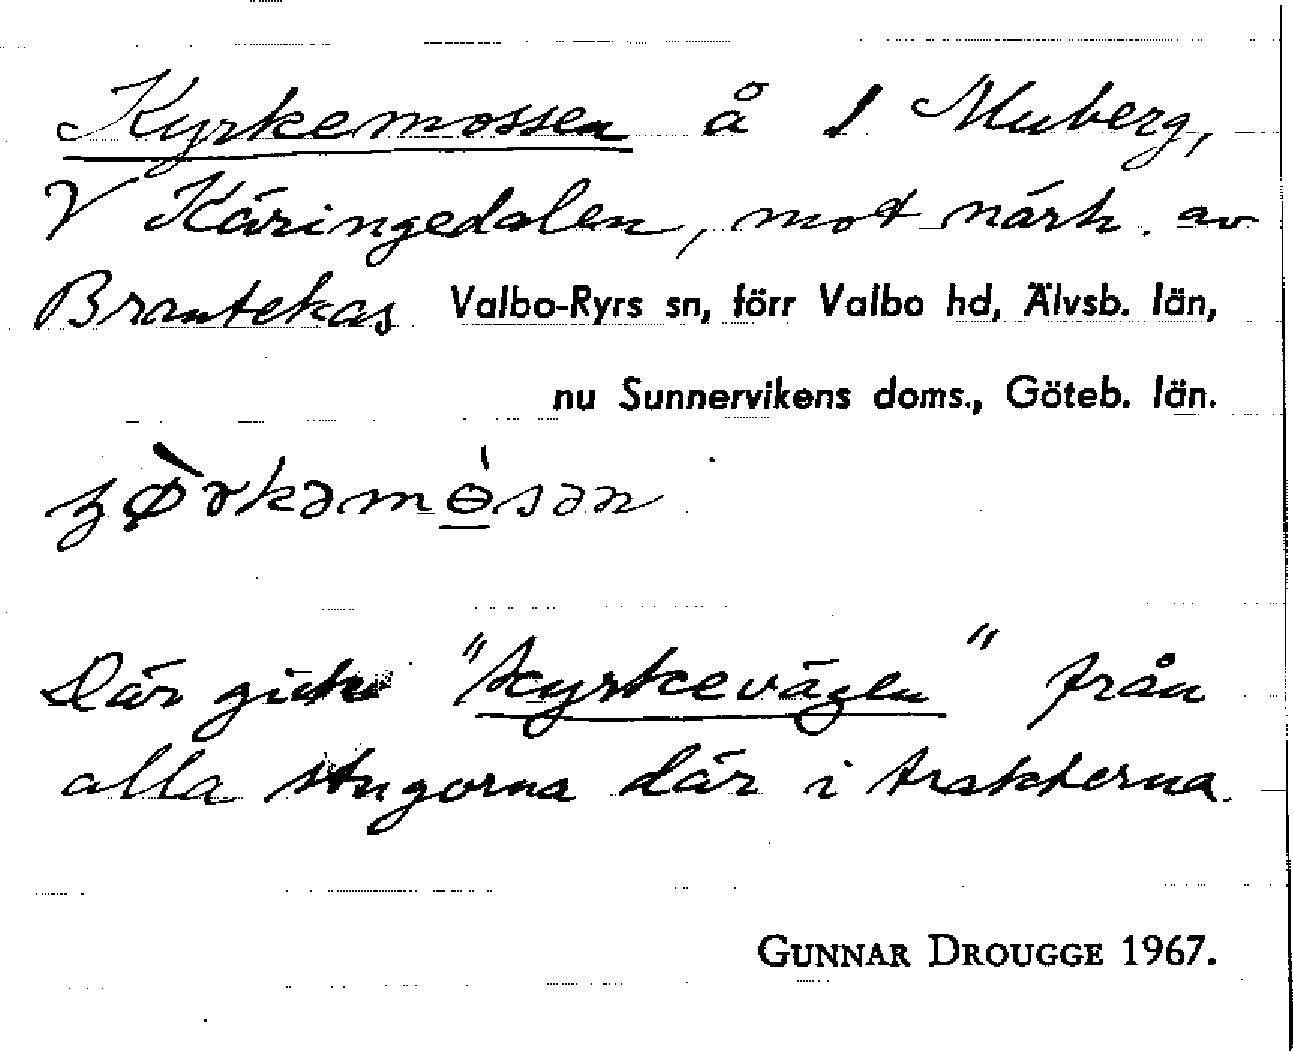 Kyrkemossen å 1 Muberg,
V Käringedalen, mot närh. av
Brantekas Valbo-Ryrs sn, förr Valbo hd, Älvsb. län,
nu Sunnervikens doms., Göteb. län.
Där gick "kyrkevägen" från
alla stugorna där i trakterna.
GUNNAR DROUGGE 1967.